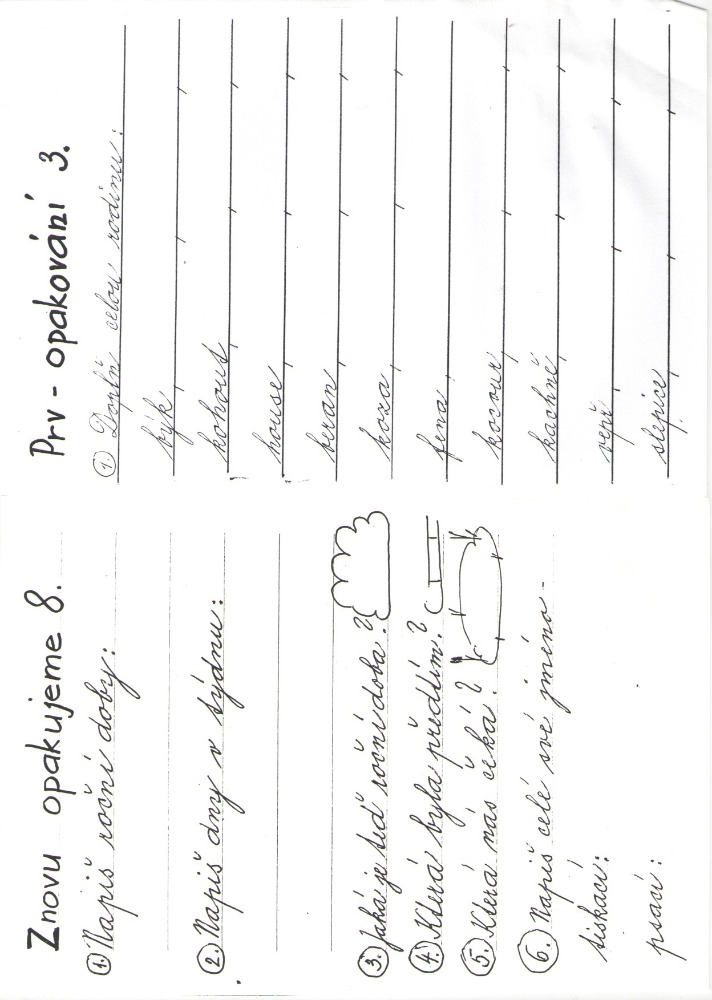 Znovu opakujeme 8.
1. Napiš roční doby:
2. Napiš dny v týdnu:
3. Jaká je teď roční doba?
4. Která byla předtím?
5. Která nás čeká?
6. Napiš celé své jméno -
tiskací:
psací:
Prv - opakování 3.
1. Doplň celou rodinu:
býk, , ,
kohout, , ,
house, , ,
beran, , ,
koza, , ,
fena,
kocour, , ,
kachně, , ,
vepř, , ,
slepice, , ,